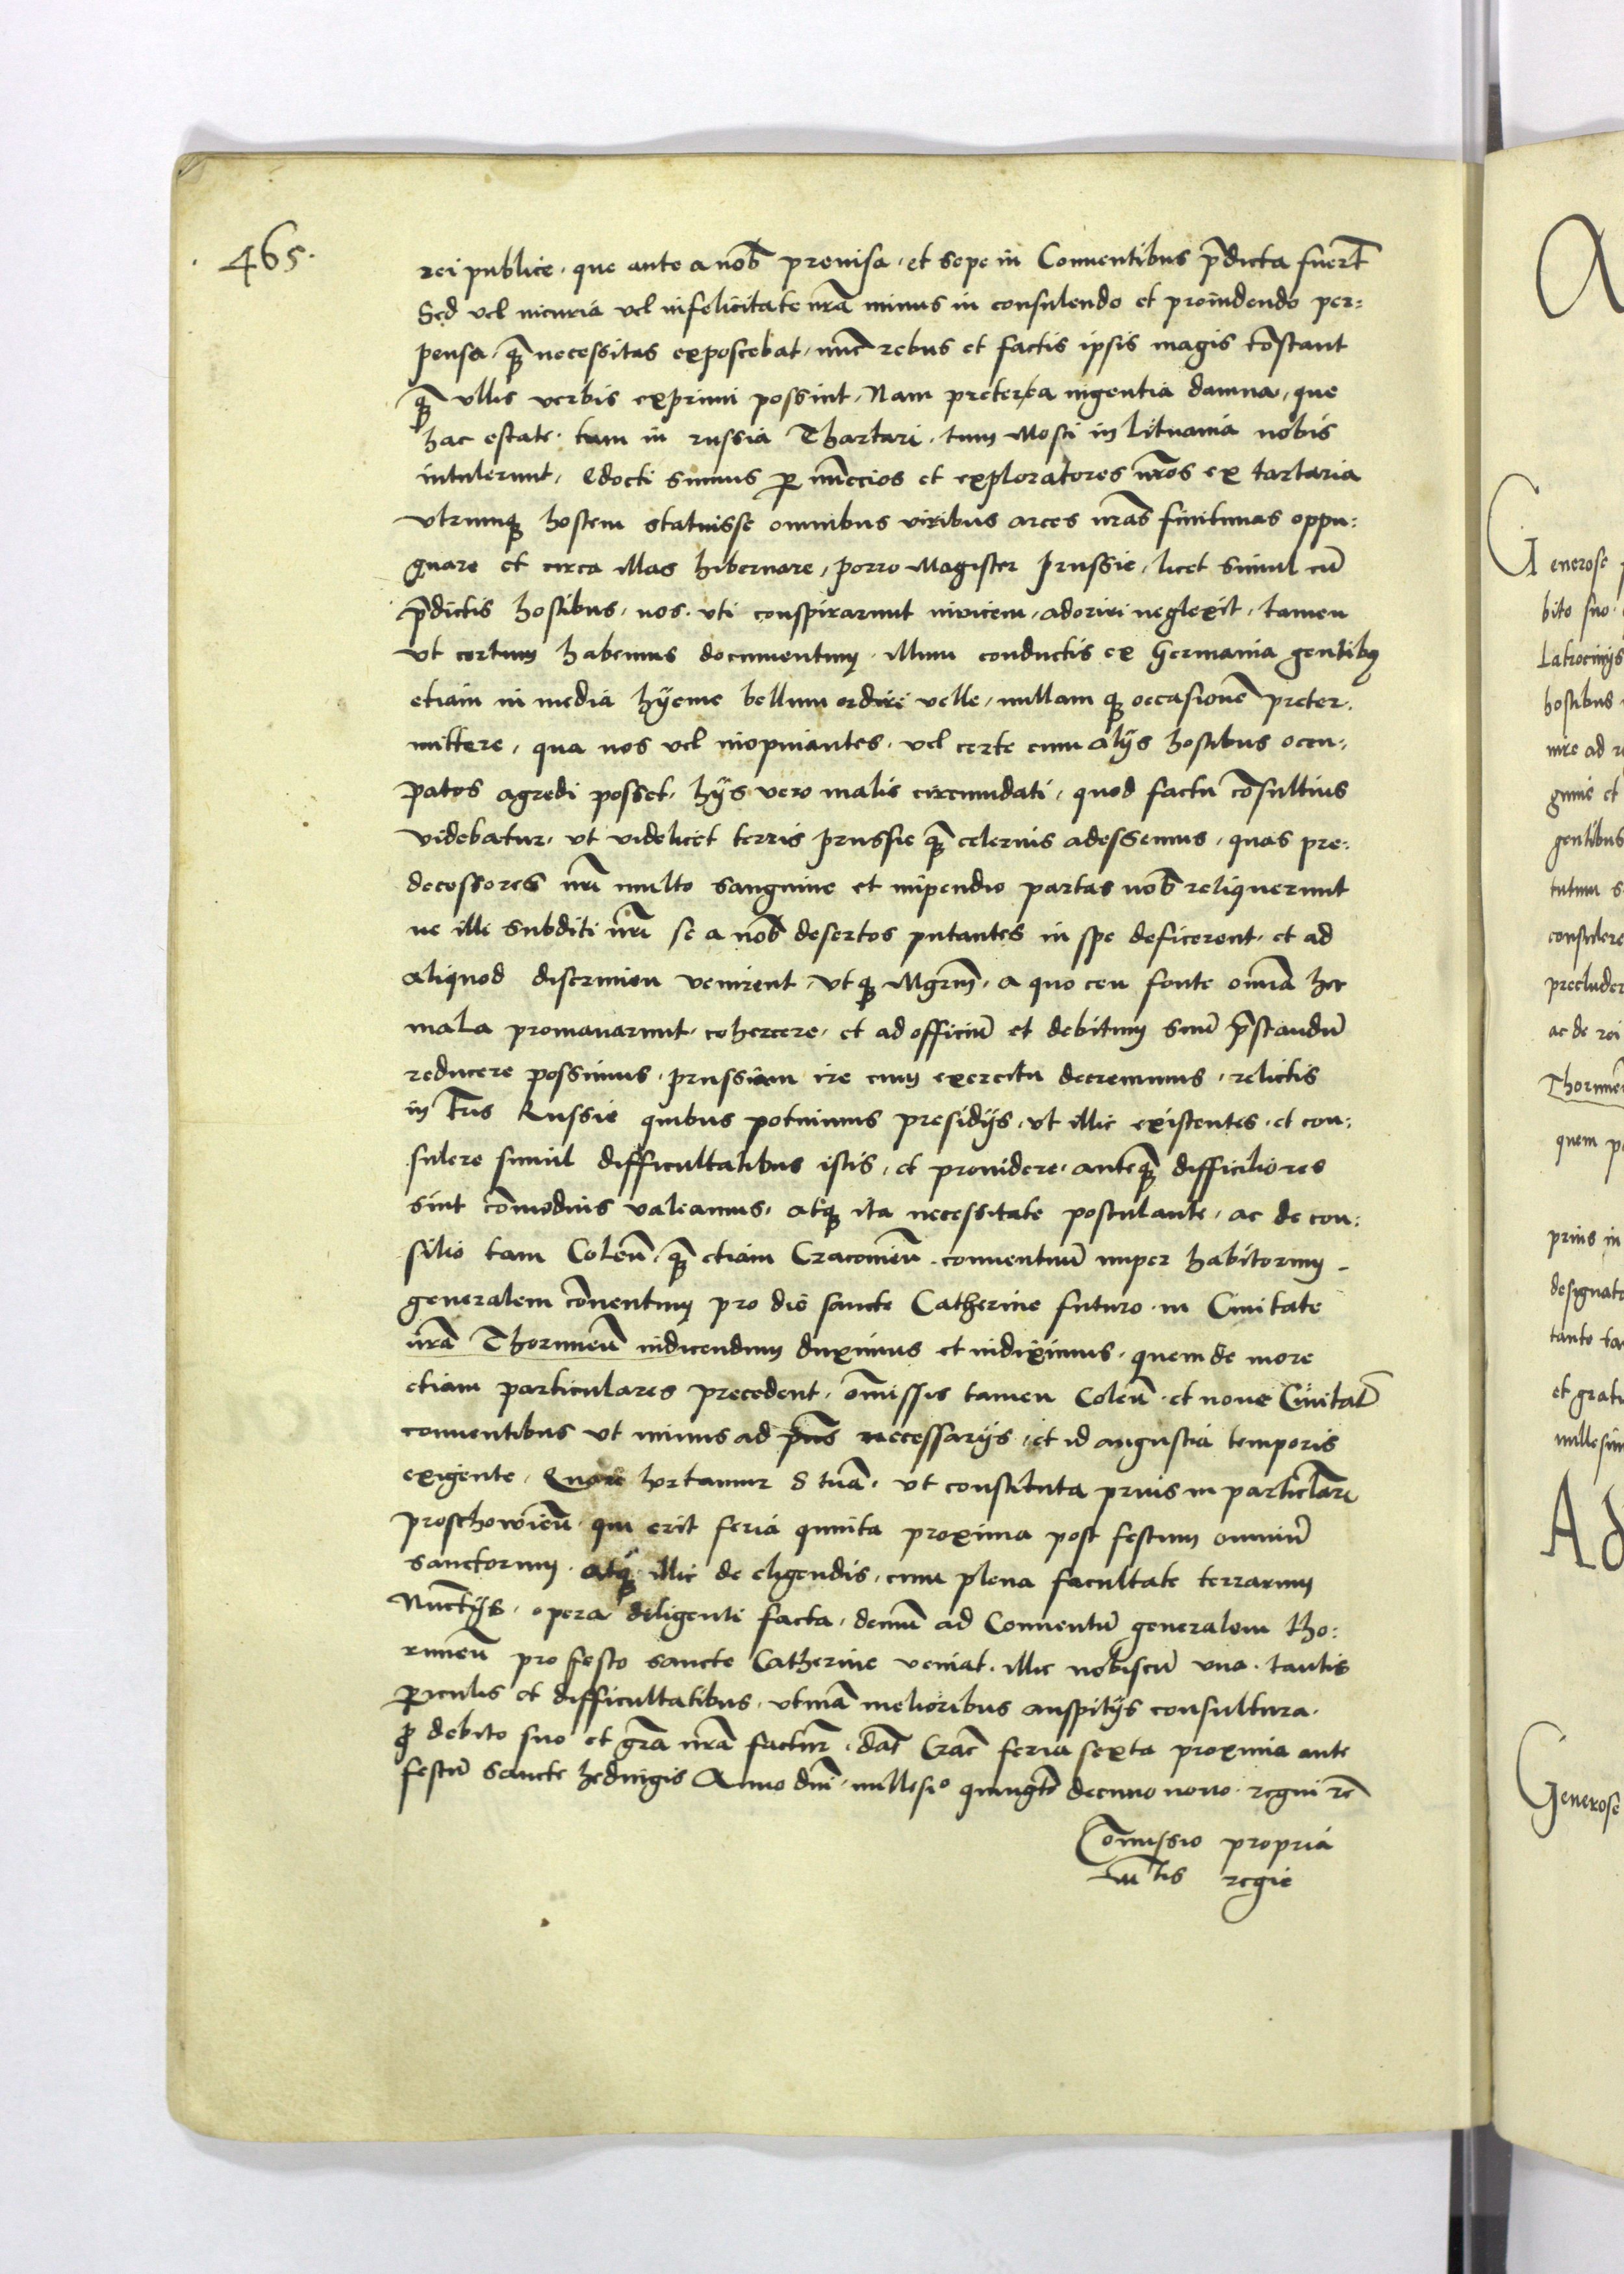 465.
rei publice. que ante a nob̄ prouisa. et sepe in Conuentibus p̄dicta fuer̄t
Sed vel incuria vel infelicitate nr̄a minus in consulendo et prouidendo per:
pensa. qꝫ necessitas exposcebat. nūc rebus et factis ipsis magis cōstant
qꝫ vllis verbis exprimi possint. Nam preterea ingentia damna, que
hac estate. tum in russia Thartari. tum Mosci in lituania nobis
intulerunt, edocti sumus ꝑ nuncios et exploratores nr̄os ex tartaria
vtrumqꝫ hostem statuisse omnibus viribus arces nr̄as finitimas oppu:
gnare et circa illas hibernare, porro Magister prussie, licet simul cū
p̄dictis hostibus. nos. vti conspirarunt inuicem. adoriri neglexit. tamen
vt certum habemus documentum. illum conductis ex Germania gentibꝫ
etiam in media hyeme bellum ordiri velle, nullam qꝫ occasionē preter.
mittere, qua nos vel inopinantes. vel certe cum alijs hostibus occu:
patos agredi posset. hijs vero malis circumdati, quod factu cōsultius
videbatur. vt videlicet terris prussie qꝫ celerius adessemus, quas pre:
decessores nr̄i multo sanguine et impendio partas nob̄ reliquerunt
ne illi subditi nr̄i se a nob̄ desertos putantes in spe deficerent. et ad
aliquod discrimen venirent, vtqꝫ Mgr̄m. a quo ceu fonte om̄ia hec
mala promanarunt. cohercere. et ad officiū et debitum suū p̄standū
reducere possimus. prussiam ire cum exercitu decreuimus. relictis
in tr̄is Russie quibus potuimus presidijs. vt illic existentes. et con:
sulere simul difficultatibus istis, et prouidere. anteqꝫ difficiliores
sint cōmodius valeamus. atqꝫ ita necessitate postulante. ac de con:
silio tam Coleñ. qꝫ etiam Cracouieñ. conuentuū nuper habitorum.
generalem cōuentum pro die sancte Catherine futuro. in Ciuitate
nr̄a Thorunieñ indicendum duximus et indiximus. quem de more
etiam particulares precedent. omissis tamen Coleñ. et noue Ciuitat̄
conuentibus vt minus ad pn̄s necessarijs. et id angustia temporis
exigente. Quare hortamur S tuā. vt constituta prius in particl̄ari
proschowieñ. qui erit feria quinta proxima post festum omniū
sanctorum. atqꝫ illic de eligendis. cum plena facultate terrarum
Nuncijs. opera diligenti facta. demū ad Conuentū generalem tho:
runieñ pro festo sancte Catherine veniat. illic nobiscū vna. tantis
ꝑiculis et difficultatibus. vtinā melioribus auspitijs consultura.
ꝓ debito suo et gr̄a nr̄a factur̄. dat̄ Crac̄ feria sexta proxima ante
festū sancte heduigis Anno dn̄i. millesiº quingēto decimo nono. regni rc̄
Comissio propria
mt̄is regie